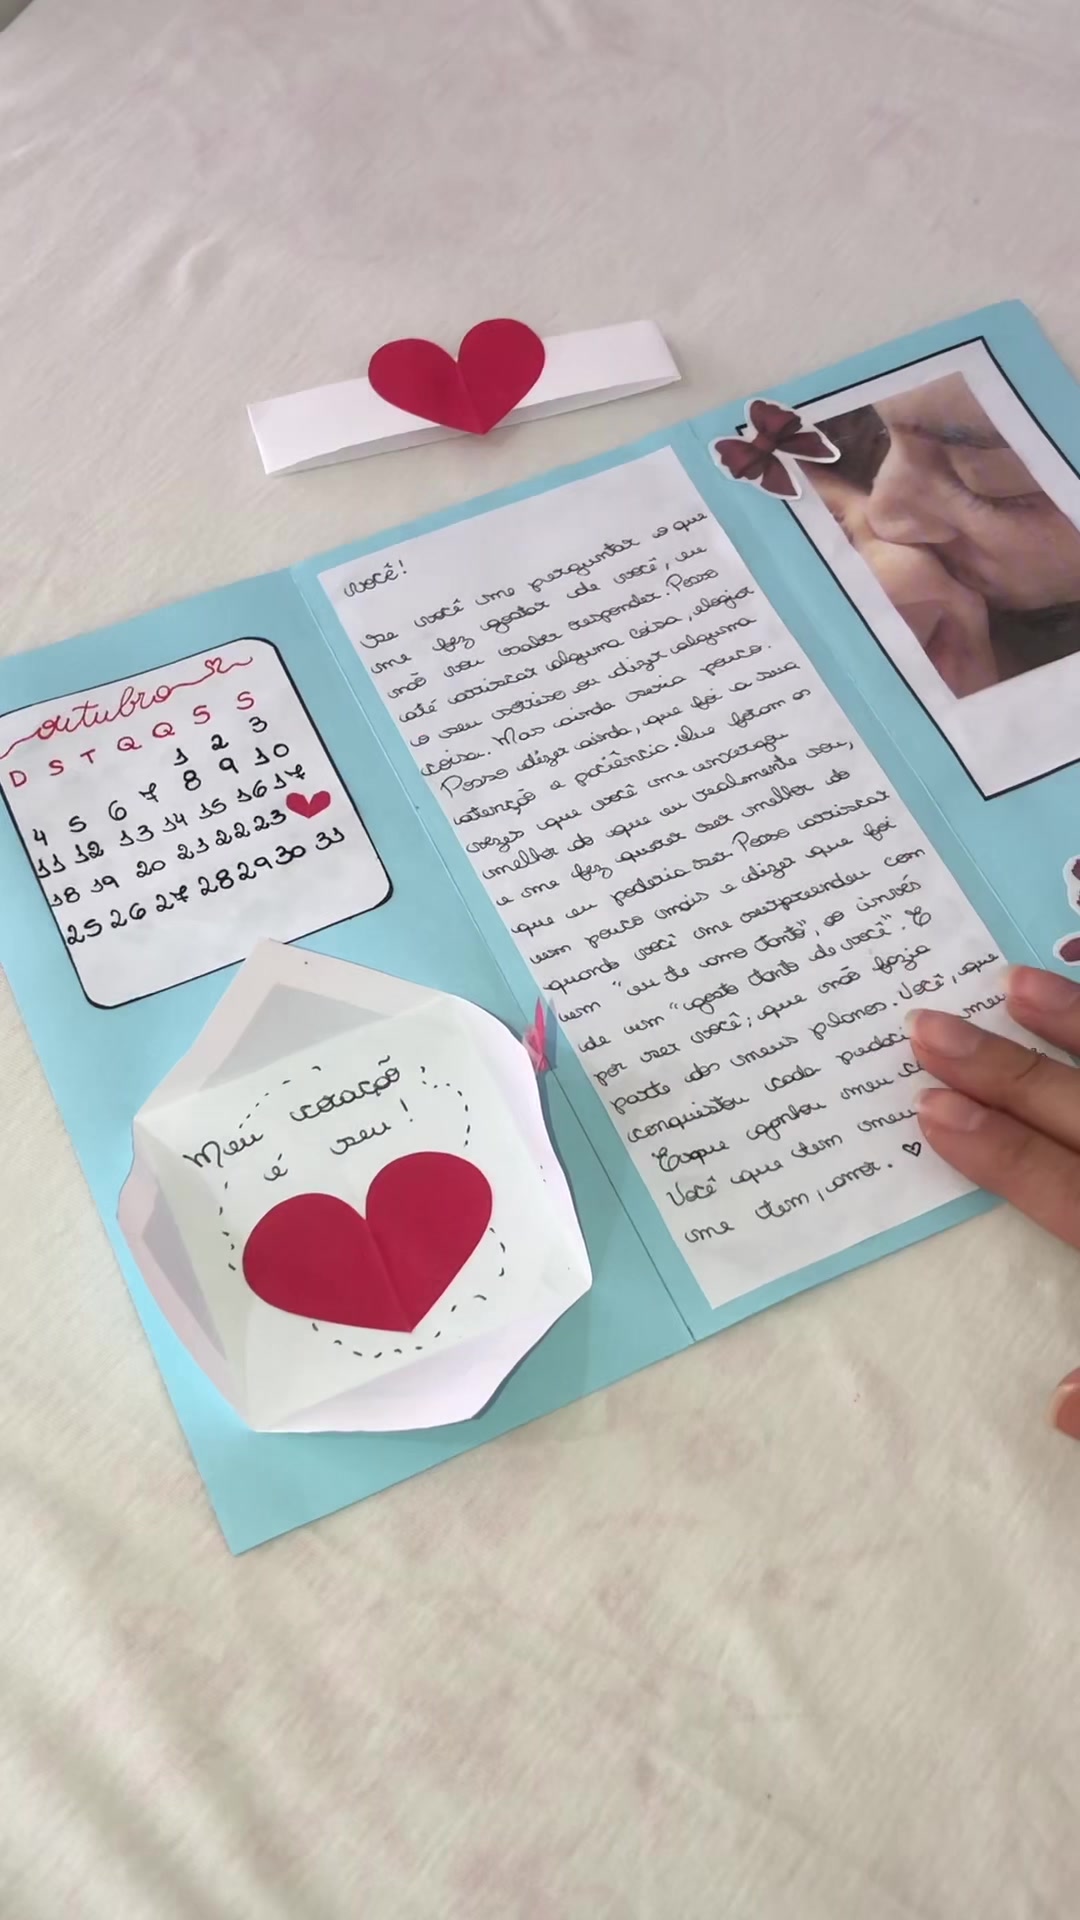 outubro
D S T Q Q S S
1 2 3
4 5 6 7 8 9 10
11 12 13 14 15 16 17
18 19 20 21 22 23
25 26 27 28 29 30 31
Meu coração
é seu!
você!
Se você me perguntar o que
me fez gostar de você, eu
não vou saber responder. Posso
até arriscar alguma coisa, elogiar
o seu sorriso ou dizer alguma
coisa. Mas ainda seria pouco.
Posso dizer ainda, que foi a sua
atenção e paciência. Que foram as
vezes que você me enxergou
melhor do que eu realmente sou,
e me fez querer ser melhor do
que eu poderia ser. Posso arriscar
um pouco mais e dizer que foi
quando você me surpreendeu com
um "eu te amo tanto", ao invés
de um "gosto tanto de você". E
por ser você; que não fazia
parte dos meus planos. Você, que
conquistou cada meu
ganhou meu
Você que tem meu
me tem, amor.